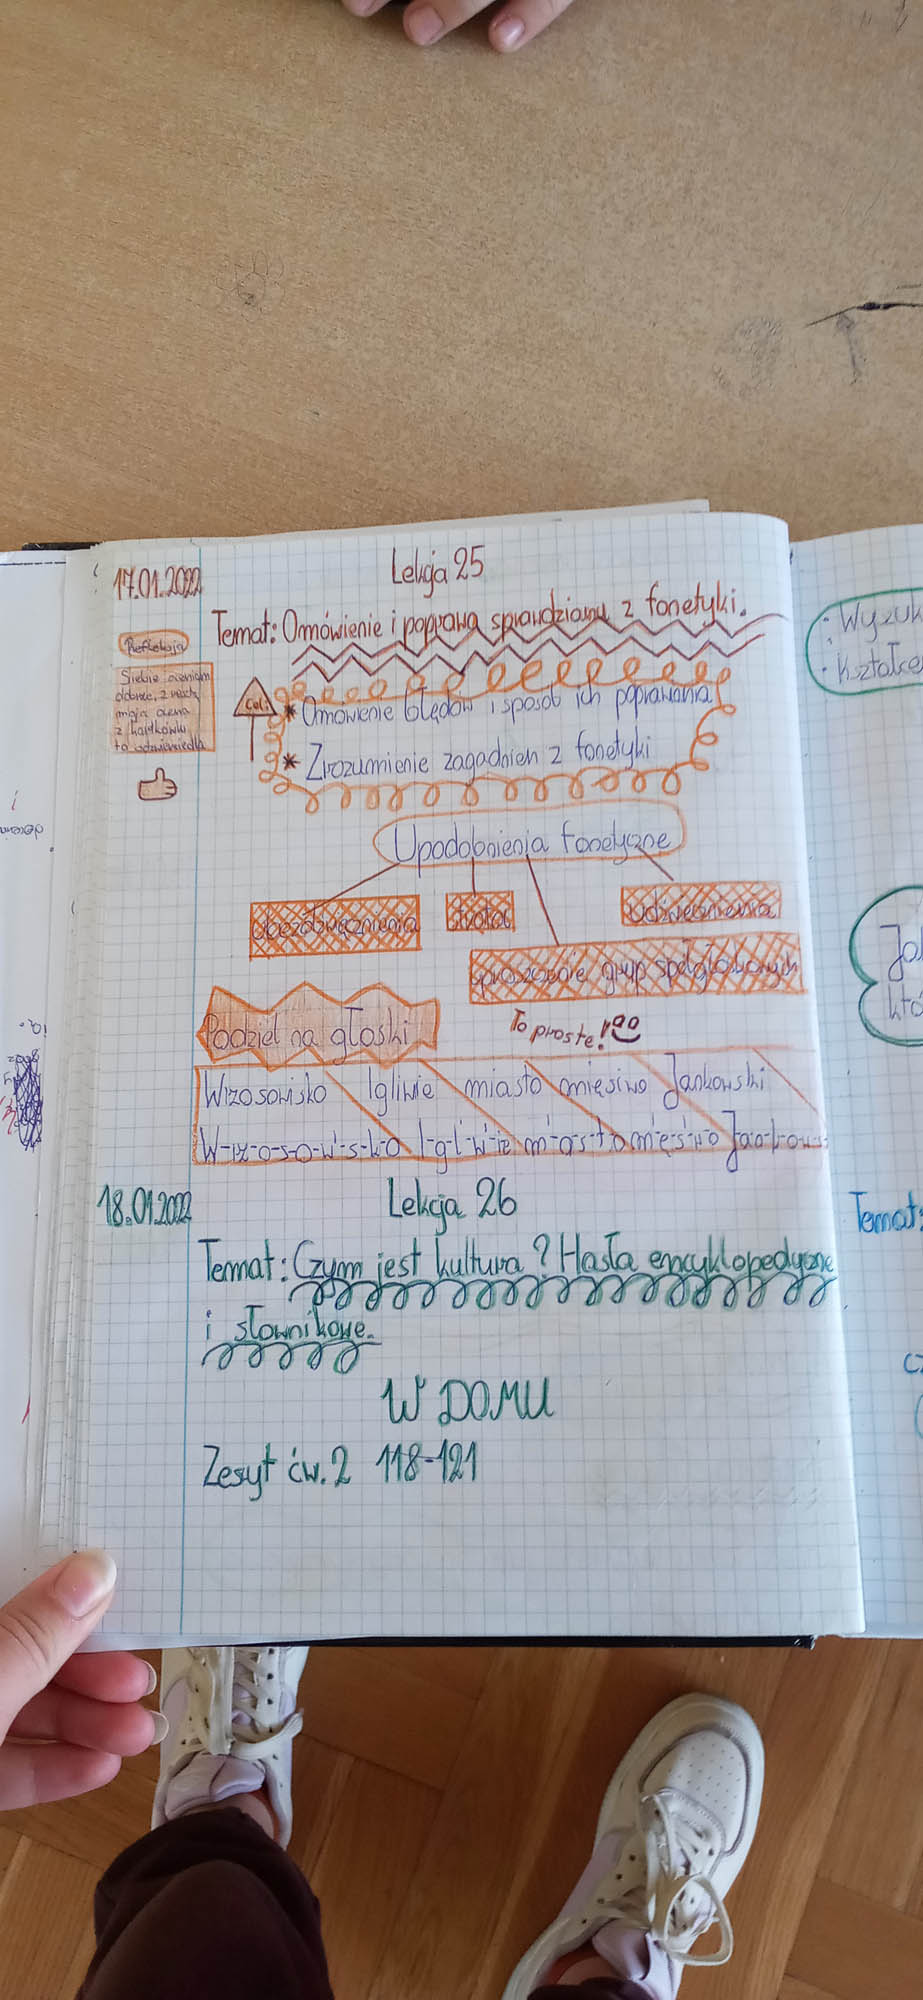 17.01.2022
Lekcja 25
Temat: Omówienie i poprawa sprawdzianu z fonetyki.
Refleksja
Siebie oceniam
dobrze, z resztą
moja ocena
z kartkówki
to odzwierciedla
Cel:
* Omówienie błędów i sposób ich poprawiania
* Zrozumienie zagadnien z fonetyki
Upodobnienia fonetyczne
utrata
udźwięcznienia
uproszczenie grup spółgłoskowych
Podziel na głoski
To proste!
Wrzosowisko Igliwie miasto mięsiwo Jankowski
W-rz-o-s-o-w'-s-k-o I-g-l'-w'-ie m'-a-s-t-o
18.01.2022
Lekcja 26
Temat: Czym jest kultura? Hasła encyklopedyczne
i słownikowe.
W DOMU
Zeszyt ćw. 2 118-121
Wyzuk
Kształce
Temat: